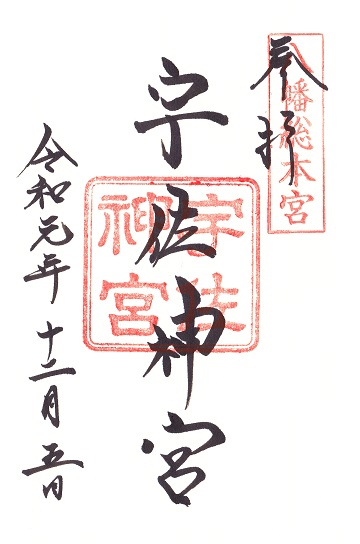 奉拝
八幡総本宮
宇佐神宮
宇佐
神宮
令和元年十二月五日